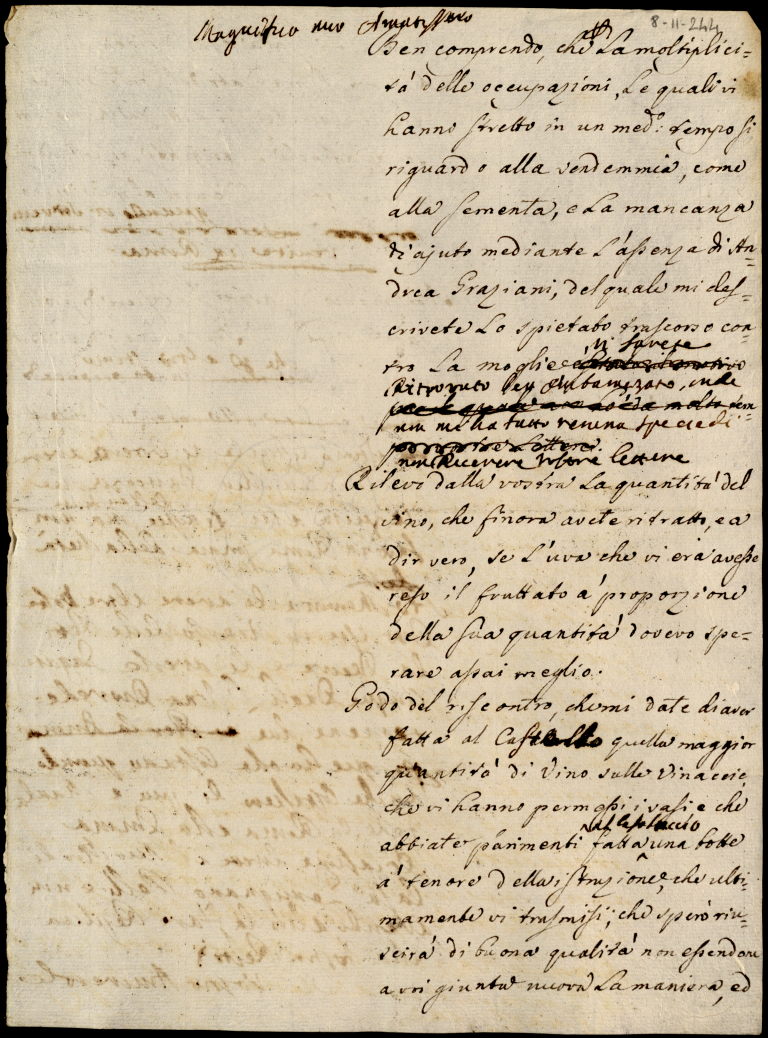 8-11-244
Magnifico mio Amatissimo
Ben comprendo, che la moltiplici=
tà delle occupazioni, le quali vi
hanno stretto in un med.º tempo sì
riguardo alla vendemmia, come
alla sementa, e la mancanza
di ajuto mediante l'assenza di An=
drea Graziani, del quale mi des=
crivete lo spietato trascorso con=
tro la moglie vi avete
ritrovato ben imbarazzato, onde
non mi ha fatto veruna specie di
non ricevere vostre lettere
Rilevo dalla vostra la quantità del
vino, che finora avete ritratto, e a
dir vero, se l'uva che vi era avesse
reso il fruttato à proporzione
della sua quantità dovevo spe=
rare assai meglio.
Godo del riscontro, che mi date di aver
fatta al quella maggior
quantità di Vino sulle Vinaccie
che vi hanno permessi i vasi e che
abbiate parimenti fatta una botte
à tenore della istruzione, che ulti=
mamente vi trasmisi, che spero riu=
scirà di buona qualità non essendo
a voi giunta nuova la maniera, ed